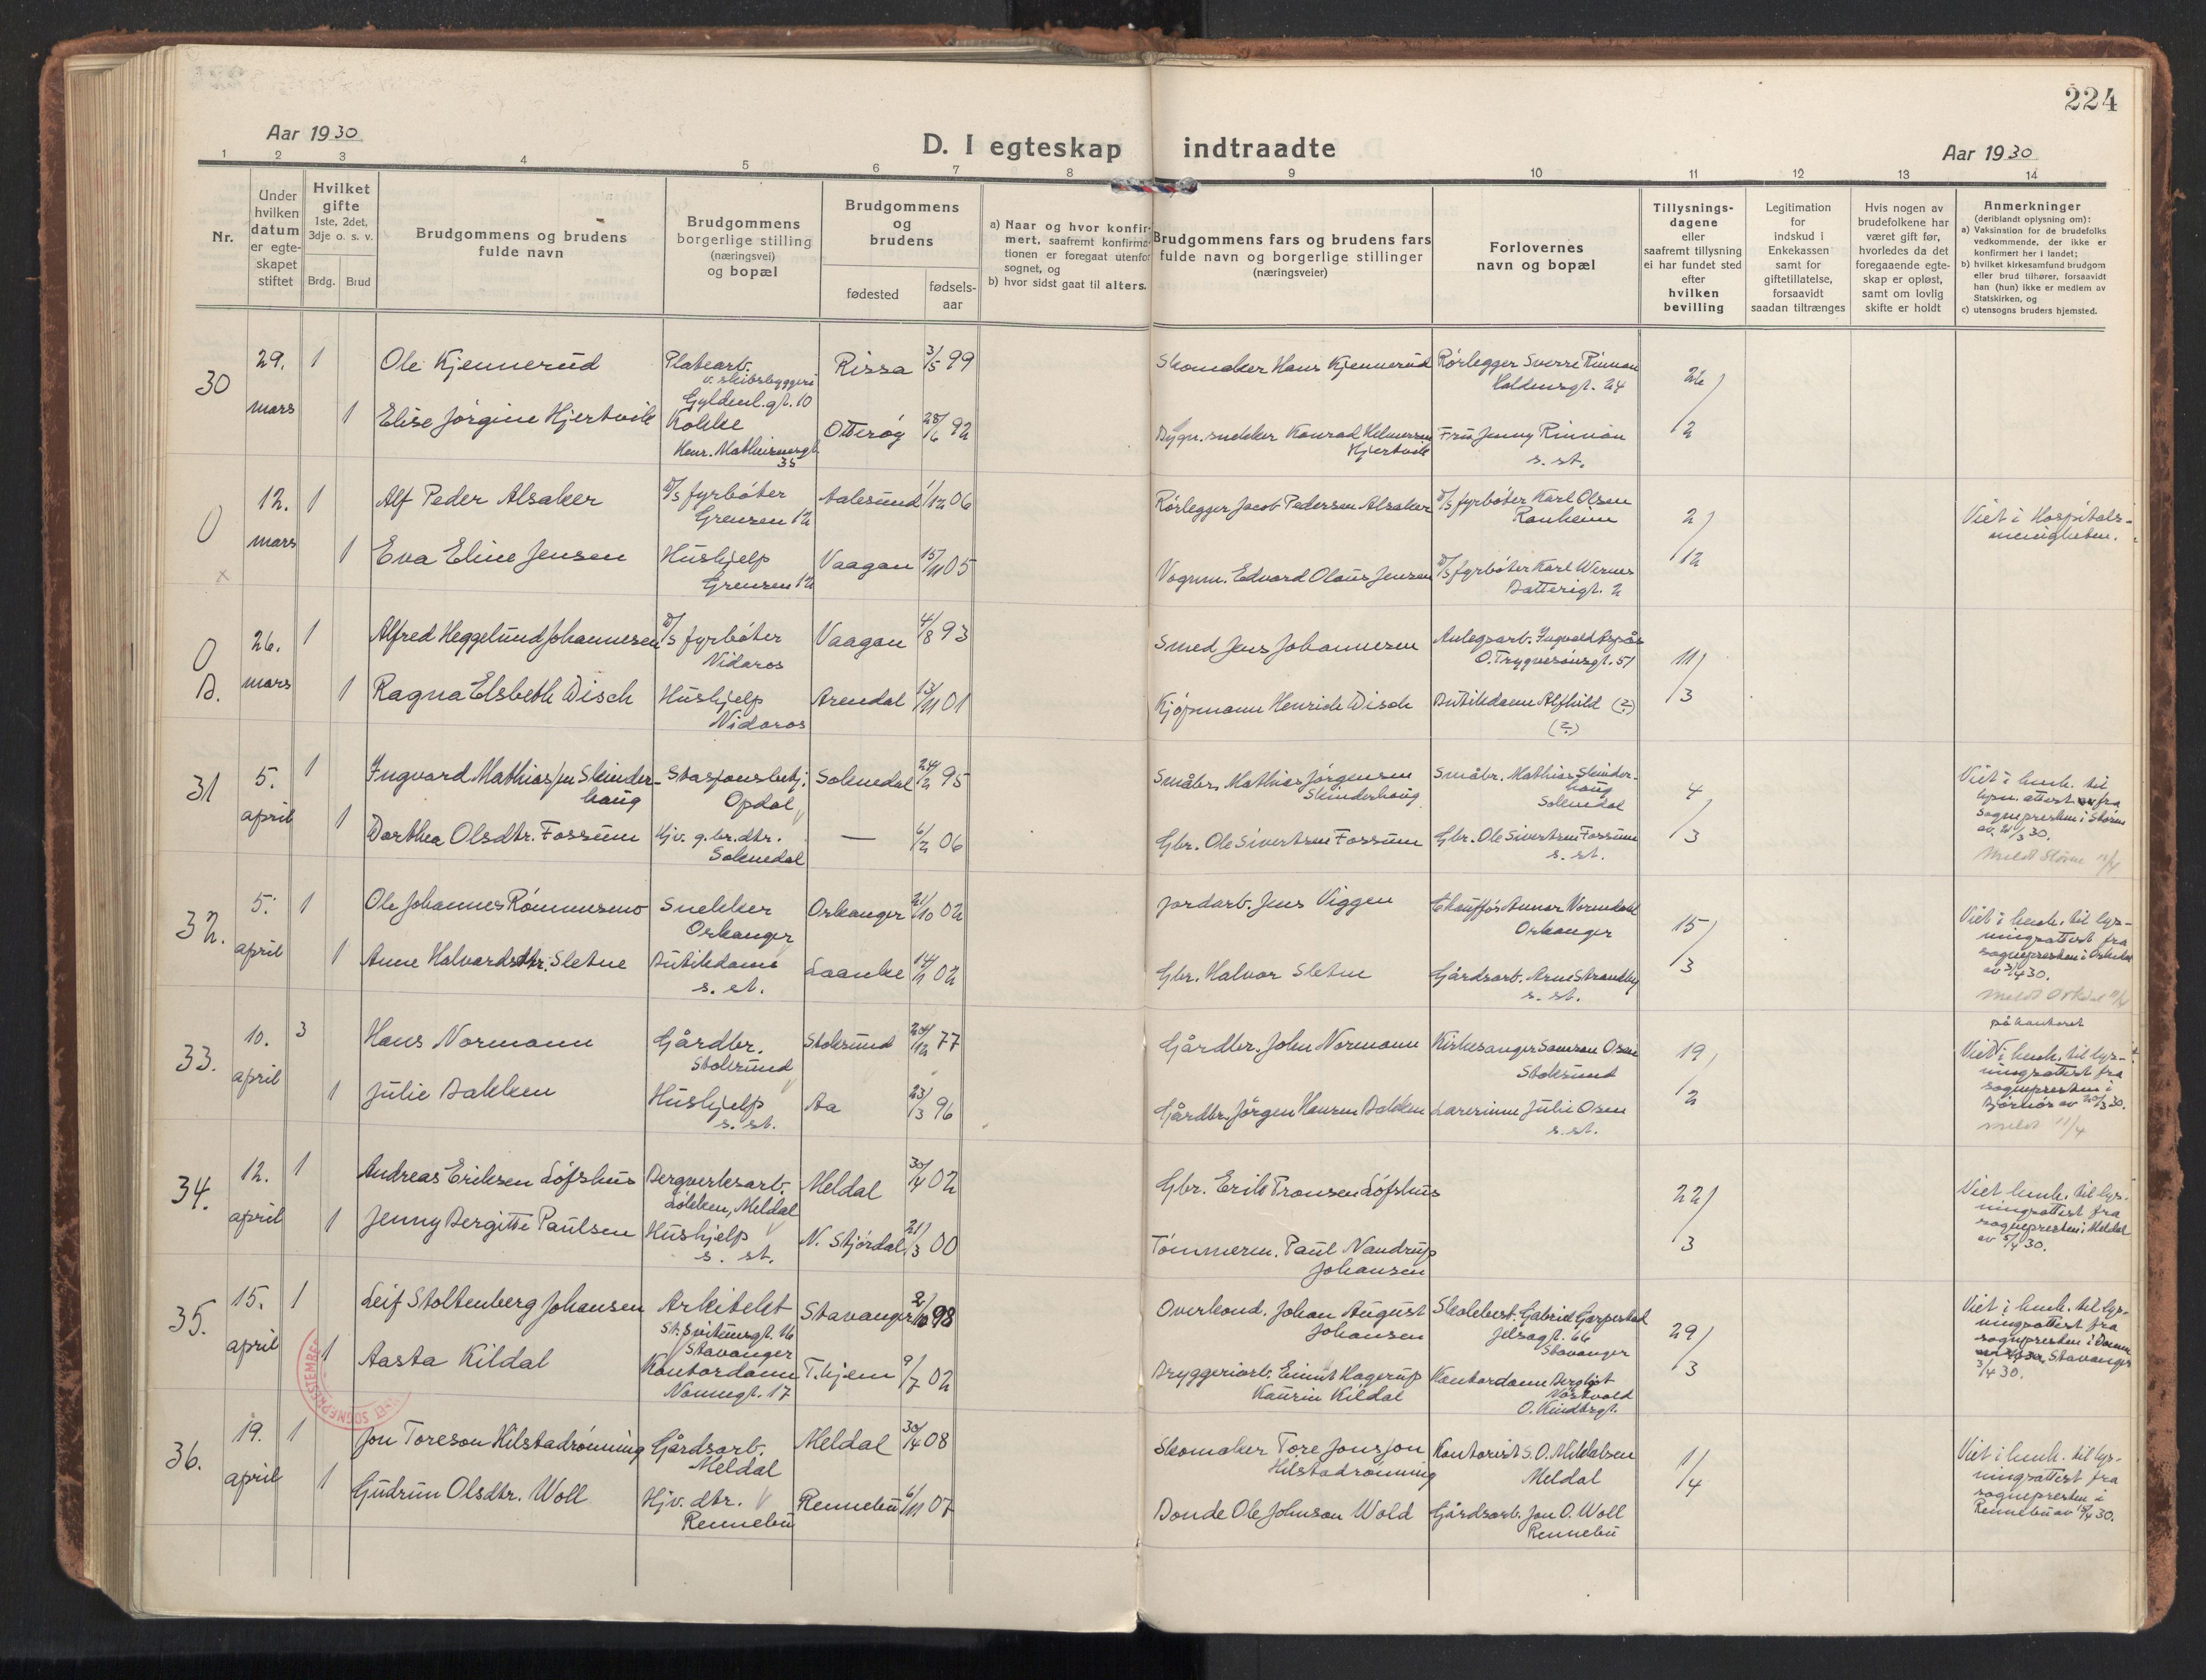 224
Aar 1930
D. I egteskap indtraadte
Aar 1930
1 2 3 4 5 6 7 8 9 10 11 12 13 14
Nr.
Under
hvilken
datum
er egte-
skapet
stiftet
Hvilket
gifte
1ste, 2det,
3dje o. s. v.
Brdg. Brud
Brudgommens og brudens
fulde navn
Brudgommens
borgerlige stilling
(næringsvei)
og bopæl
Brudgommens
og
brudens
fødested
fødsels-
aar
a) Naar og hvor konfir-
mert, saafremt konfirma-
tionen er foregaat utenfor
sognet, og
b) hvor sidst gaat til alters.
Brudgommens fars og brudens fars
fulde navn og borgerlige stillinger
(næringsveier)
Forlovernes
navn og bopæl
Tillysnings-
dagene
eller
saafremt tillysning
ei har fundet sted
efter
hvilken
bevilling
Legitimation
for
indskud i
Enkekassen
samt for
giftetillatelse,
forsaavidt
saadan tiltrænges
Hvis nogen av
brudefolkene har
været gift før,
hvorledes da det
foregaaende egte-
skap er opløst,
samt om lovlig
skifte er holdt
Anmerkninger
(deriblandt oplysning om):
a) Vaksination for de brudefolks
vedkommende, der ikke er
konfirmert her i landet;
b) hvilket kirkesamfund brudgom
eller brud tilhører, forsaavidt
han (hun) ikke er medlem av
Statskirken, og
c) utensogns bruders hjemsted.
30
29.
mars
1
Ole Kjennerud
Platearb.
v. skibsbyggeri
Gyldenl.gt. 10
Rissa 3/5 99
Skomaker Hans Kjennerud
Rørlegger Sverre Rinnan
Haldensgt. 24
26/2
1
Elise Jørgine Hjertvik
Kokke
Henr. Mathisensgt.
35
Otterøy 28/6 92
Bygn.snekker Konrad Helmersen
Hjertvik
Fru Jenny Rinnan
s. st.
0
x
12.
mars
1
Alf Peder Alsaker
D/S fyrbøter
Grensen 12
Aalesund 1/12 06
Rørlegger Jacob Pedersen Alsaker
D/S fyrbøter Karl Olsen
Ranheim
2/12
Viet i Hospitals-
menigheten.
1
Eva Eline Jensen
Hushjelp
Grensen 12
Vaagan 15/11 05
Vognm. Edvard Olaus Jensen
D/S fyrbøter Karl Werner
Batterigt. 2
0
D.
26.
mars
1
Alfred Heggelund Johannesen
D/S fyrbøter
Nidaros
Vaagan 4/8 93
Smed Jens Johannesen
Anlegsarb. Ingvald
O. Trygvesønsgt. 51
11/3
1
Ragna Elsbeth Disch
Hushjelp
Nidaros
Arendal 13/11 01
Kjøpmann Henrich Disch
Butikdame Alfhild (?)
(?)
31
5.
april
1
Ingvard Mathiasen Skinder-
haug
Stasjonsbetj.
Opdal
Solnedal 24/2 95
Småbr. Mathias Jørgensen
Skinderhaug
Småbr. Mathias Skinder-
haug
Solnedal
4/3
Viet i henh. til
lysn. attest fra
Sognepresten i Støren
av 21/3 30.
Meldt Støren 11/4
1
Dorthea Olsdtr. Fossum
Hjv. g.br.dtr.
Solnedal
— 6/2 06
Gbr. Ole Sivertsen Fossum
Gbr. Ole Sivertsen Fossum
s. st.
32.
5.
april
1
Ole Johannes
Snekker
Orkanger
Orkanger 21/10 02
Jordarb. Jens Viggen
Chauffør Annar Normdahl
Orkanger
15/3
Viet i henh. til lys-
ningsattest fra
sognepresten i Orkdal
av 3/4 30.
Meldt Orkdal 11/4
1
Anne Halvardsdtr. Sletne
Butikdame
s. st.
Laanke 14/11 02
Gbr. Halvor Sletne
Gårdsarb. Arne Strandby
s. st.
33.
10.
april
3
Hans Normann
Gårdbr.
Stoksund
Stoksund 20/12 77
Gårdbr. John Normann
Kirkesanger Samson Osen
Stoksund
19/2
på kontoret
Viet i henh. til lys-
ningsattest fra
sognepresten i
Bjørnør av 20/3 30.
Meldt 11/4
1
Julie Bakken
Hushjelp
s. st.
Aa 23/3 96
Gårdbr. Jørgen Hansen Bakken
Lærerinne Julie Osen
s. st.
34.
12.
april
1
Andreas Eriksen Løfshus
Bergverksarb.
Løkken, Meldal
Meldal 30/4 02
Gbr. Erik Tronsen Løfshus
22/3
Viet henh. til lys-
ningsattest fra
sognepresten i Meldal
av 5/4 30.
1
Jenny Bergitte Paulsen
Hushjelp
s. st.
N. Stjørdal 21/3 00
Tømmerm. Paul Nandrup
Johansen
35.
15.
april
1
Leif Stoltenberg Johansen
Arkitekt
St. Svitunsgt. 16
Stavanger
Stavanger 2/10 98
Overkond. Johan August
Johansen
Skolebest. Gabriel Garpestad
Jelsagt. 66
Stavanger
29/3
Viet i henh. til lys-
ningsattest fra
sognepresten i Domm
Stavanger
3/4 30.
1
Aasta Kildal
Kontordame
Nonnegt. 17
T.hjem 9/7 02
Bryggeriarb. Einut Hagerup
Kaurin Kildal
Kontordame Bergljot
Nøstvold
O. Kindbrgt.
36.
19.
april
1
Jon Toreson Hilstadrønning
Gårdsarb.
Meldal
Meldal 30/4 08
Skomaker Tore Jonsson
Hilstadrønning
Kontorist S. O. Mikkelsen
Meldal
1/4
Viet i henh. til lys-
ningsattest fra
sognepresten i
Rennebu av 15/4 30.
1
Gudrun Olsdtr. Woll
Hjv. dtr.
Rennebu
Rennebu 6/11 07
Bonde Ole Johnson Wold
Gårdsarb. Jon O. Woll
Rennebu